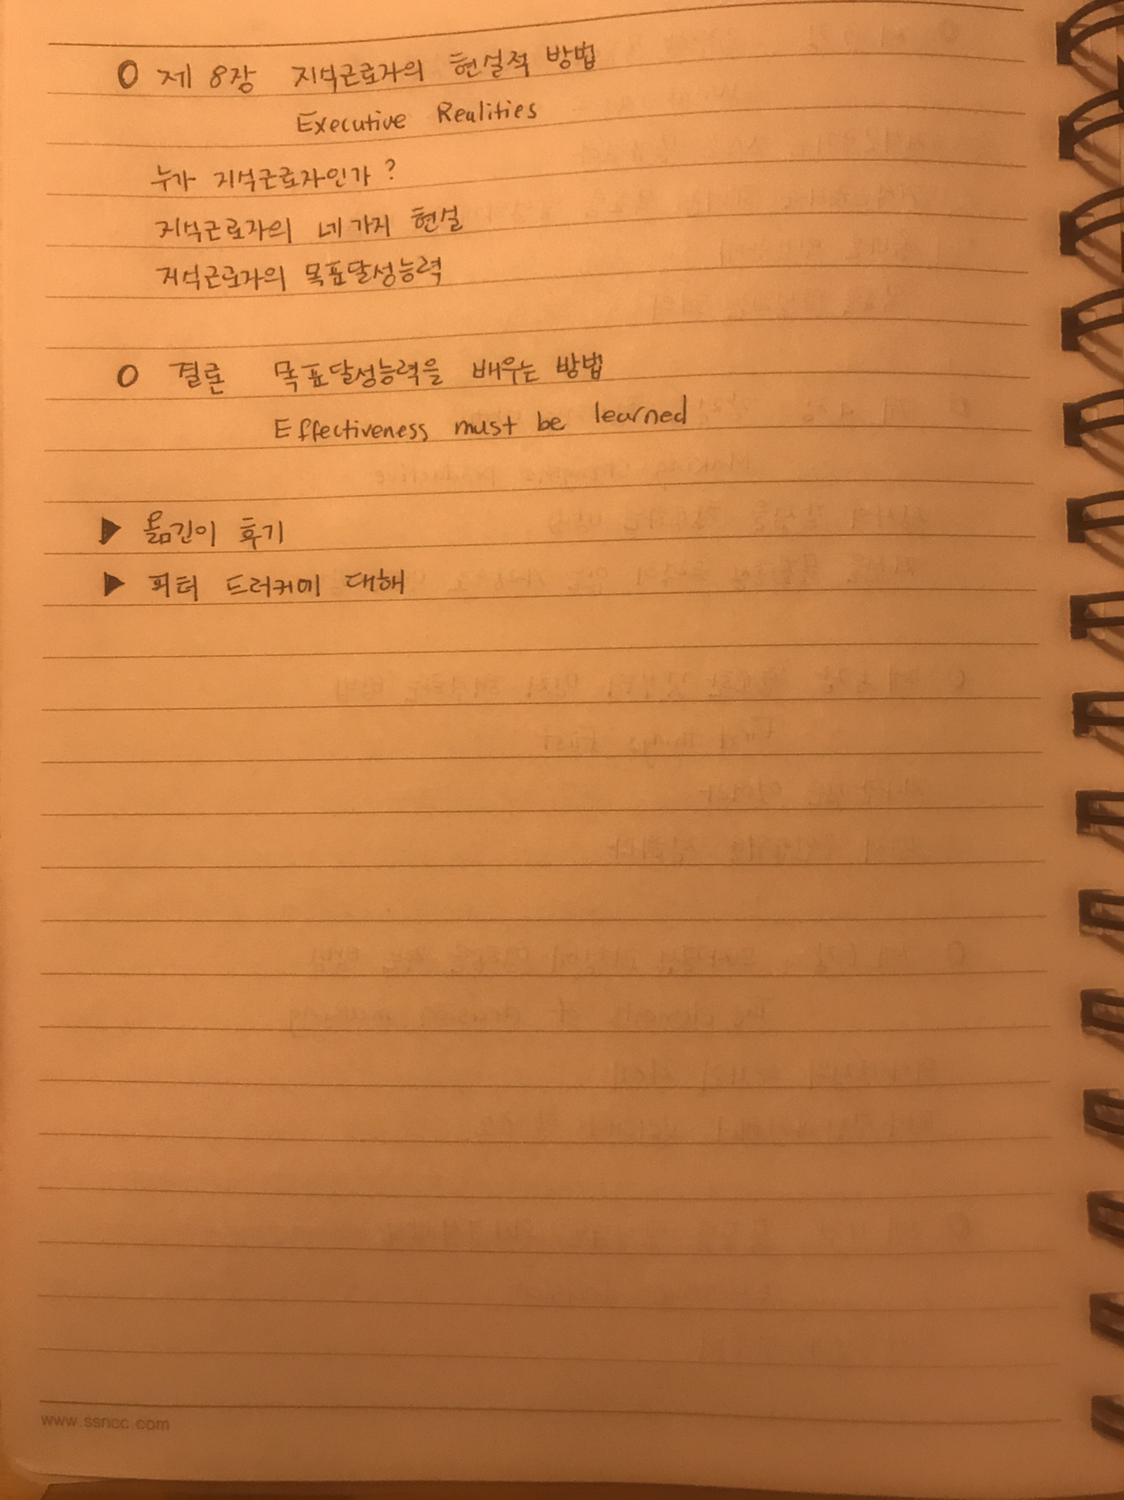 O 제 8장 지식근로자의 현실적 방법
Executive Realities
누가 지식근로자인가?
지식근로자의 네가지 현실
지식근로자의 목표달성능력
O 결론 목표달성능력을 배우는 방법
Effectiveness must be learned
▶ 옮긴이 후기
▶ 피터 드러커에 대해
www.ssncc.com